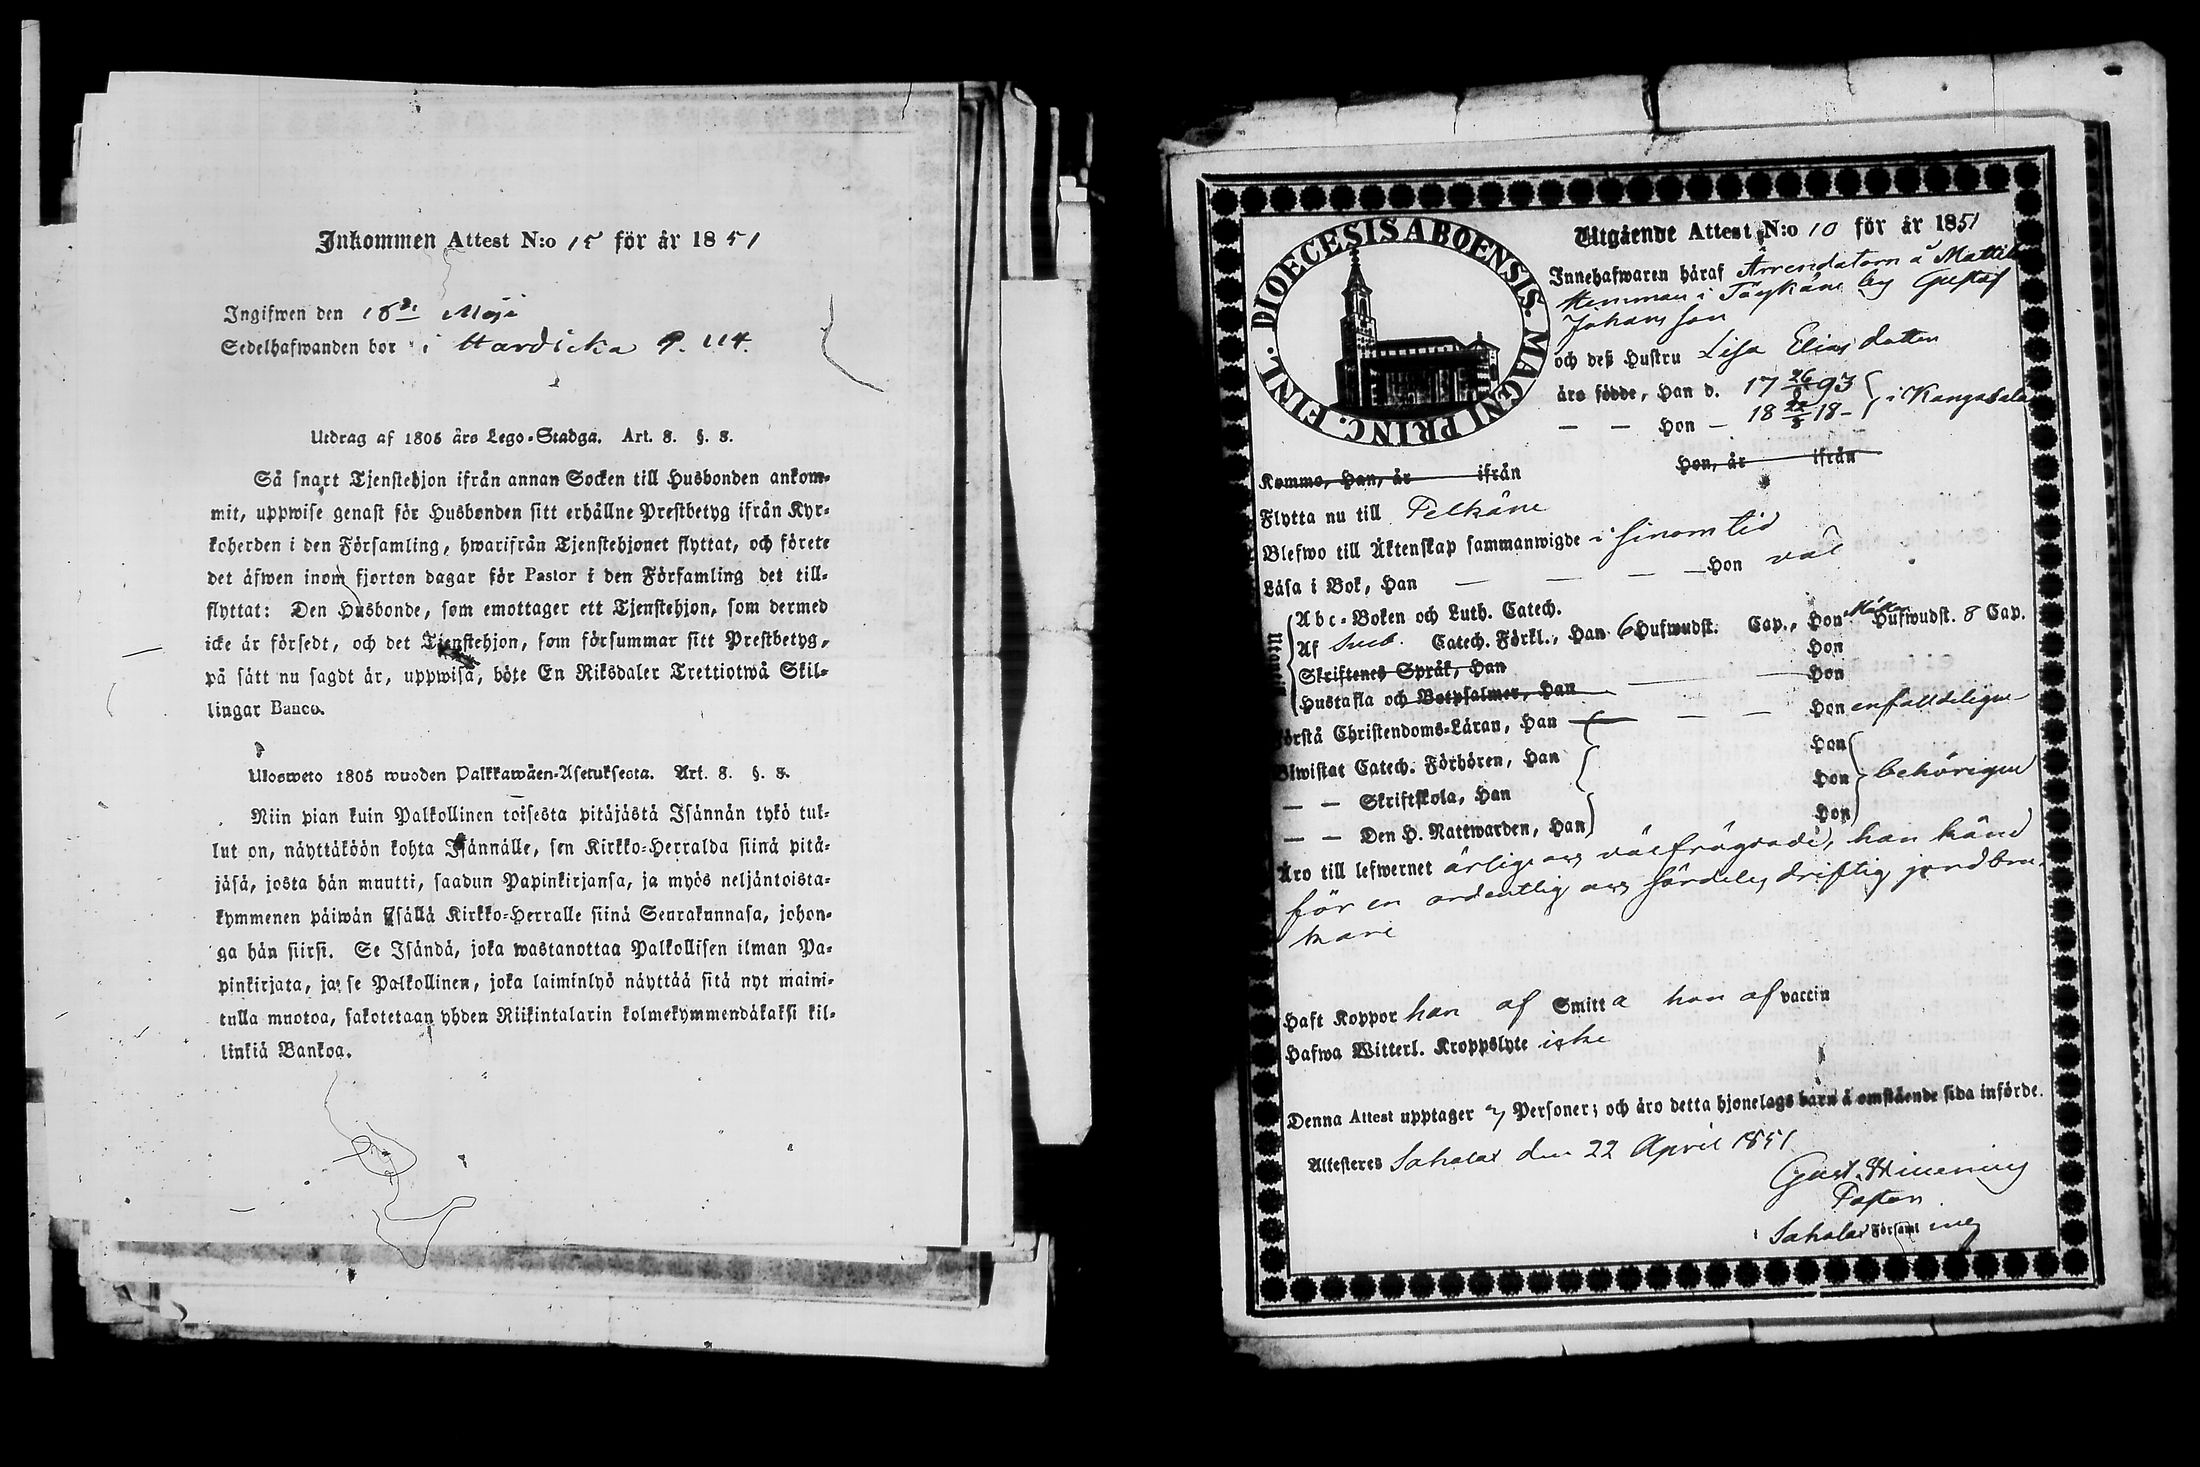 Inkommen Attest N:o 15 för år 1851
Ingifwen den 18de Maji
Sedelhafwanden bor i
Utdrag af 1805 års Lego-Stadga. Art. 8. §. 8.
Så snart Tjenstehjon ifrån annan Socken till Husbonden ankom-
mit, uppwise genast för Husbonden sitt erhållne Prestbetyg ifrån Kyr-
koherden i den Församling, hwarifrån Tjenstehjonet flyttat, och förete
det äfwen inom fjorton dagar för Pastor i den Församling det till-
flyttat: Den Husbonde, som emottager ett Tjenstehjon, som dermed
icke är försedt, och det Tjenstehjon, som försummar sitt Prestbetyg,
på sätt nu sagdt är, uppwisa, böte En Riksdaler Trettiotwå Skil-
lingar Banco.
Ulosweto 1805 wuoden Palkkawäen-Asetuksesta. Art. 8. §. 8.
Niin pian kuin Palkollinen toisesta pitäjästä Isännän tykö tul-
lut on, näyttäköön kohta Isännälle, sen Kirkko-Herralda siinä pitä-
jäsä, josta hän muutti, saadun Papinkirjansa, ja myös neljäntoista-
kymmenen päiwän sisällä Kirkko-Herralle siinä Seurakunnasa, johon-
ga hän siirsi. Se Isändä, joka wastanottaa Palkollisen ilman Pa-
pinkirjata, ja se Palkollinen, joka laiminlyö näyttää sitä nyt maini-
tulla muotoa, sakotetaan yhden Riikintalarin kolmekymmendäkaksi kil-
linkiä Bankoa.
DIOECESIS ABOENSIS. MAGNI PRINC. FINL.
Utgående Attest N:o 10 för år 1851
Innehafwaren häraf Arrendatorn å Mattila
Hemman i by Gustaf
Johansson
och deß Hustru Lisa Eliasdotter
äro födde, Han d. 17 26/8 93 i Kangasala
— — Hon — 18 22/5 18 —
Kommo, Han, år ifrån Hon, år ifrån
Flytta nu till Pelkäne
Blefwo till Äktenskap sammanwigde i sinom tid
Läsa i Bok, Han — — — — Hon väl
Utantill
Abc-Boken och Luth. Catech.
Af Sveb. Catech. Förkl., Han 6 Hufwudst. Cap., Hon Hufwudst. 8 Cap.
Skriftenes Språk, Han Hon
Hustafla och Botpsalmer, Han Hon
Förstå Christendoms-Läran, Han — — — Hon enfaldeligen
Biwistat Catech. Förhören, Han Hon
— — Skriftskola, Han Hon behörigen
— — Den H. Nattwarden, Han Hon
Äro till lefwernet ärlige och välfrägdade, han känd
för en ordentlig och särdeles driftig jordbru-
kare
Haft Koppor han af Smitta hon af vaccin
Hafwa Witterl. Kroppslyte icke
Denna Attest upptager 7 Personer; och äro detta hjonelags barn å omstående sida införde.
Attesteres Sahalax den 22 April 1851
Gust.
Pastor
i Sahalax Församling